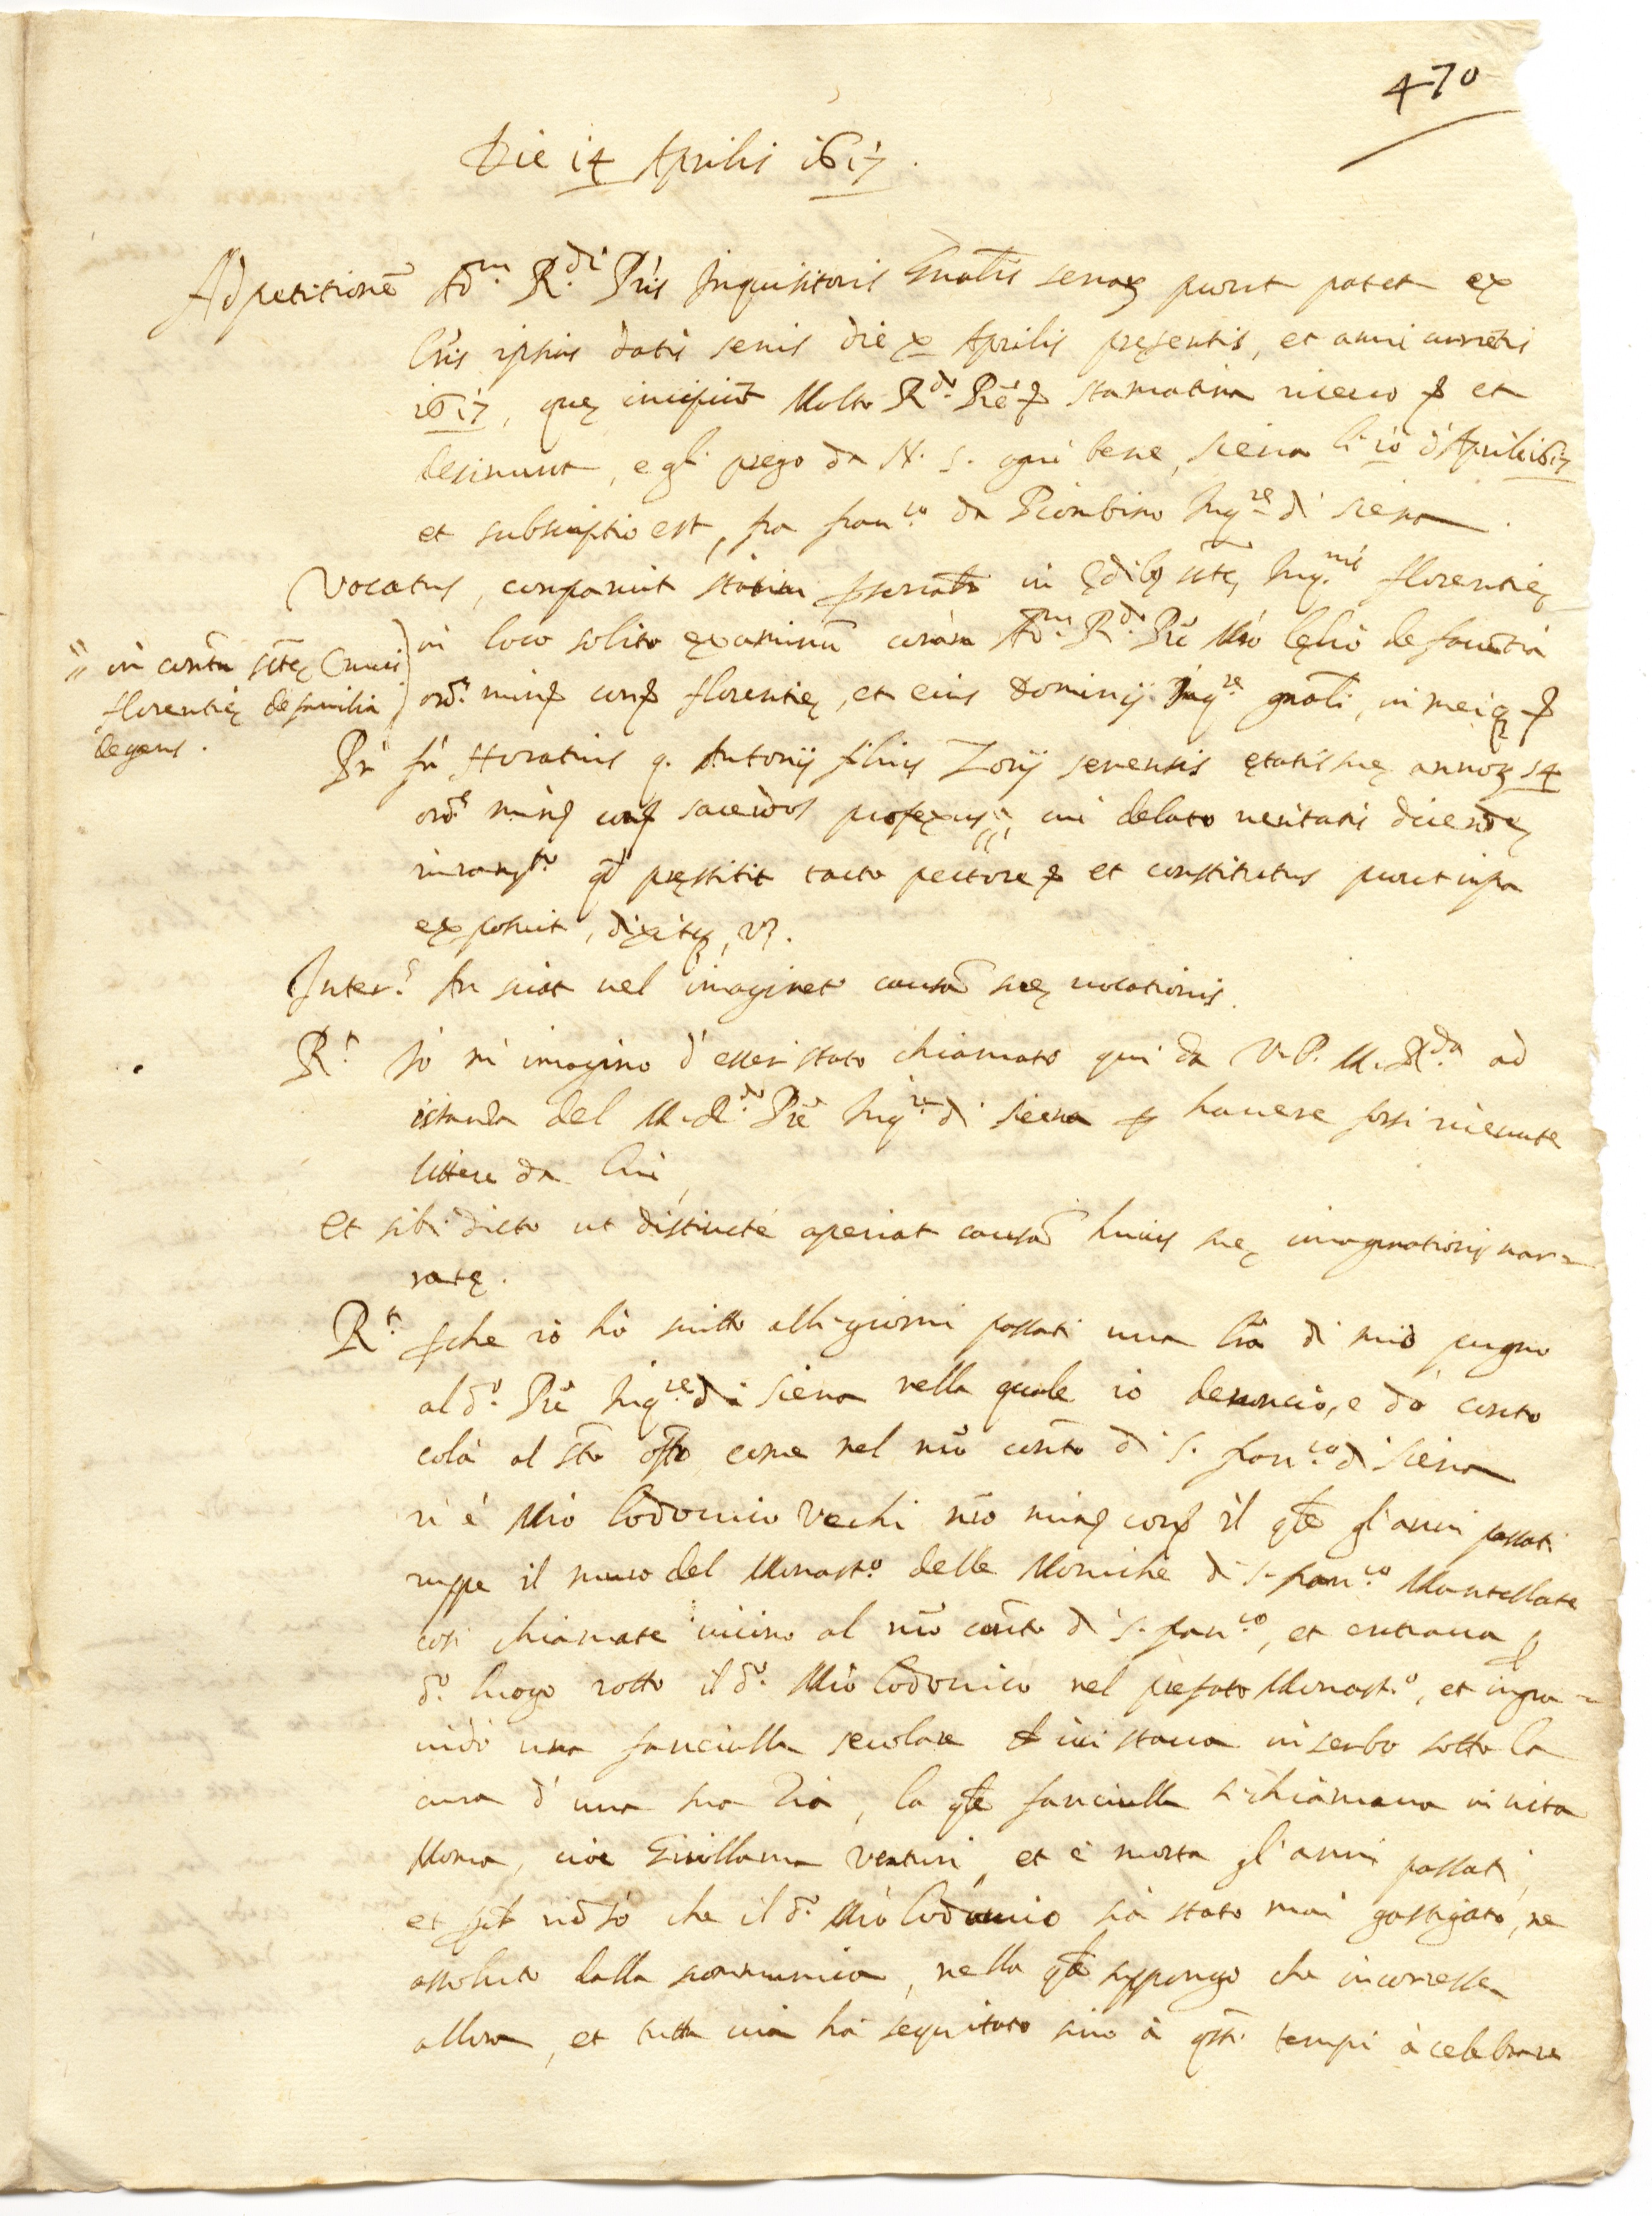 470
Die 14 Aprilis 1617.
Ad petitionē Ad.m R.di Pris Inquisitoris Gnālis Senaꝝ prout patet ex
Lris ipsius datis Senis die x Aprilis pręsentis, et anni currētis
1617, quę incipiūt Molto R.do Prē & stamatina ricevo & et
desinunt, e gli prego da N. S. ogni bene, Siena li 10 d'Aprile 1617
et subscriptio est, fra Fran.co da Piombino Inq.re di Siena.
Vocatus, comparuit personalr in ędibꝫ sctę Inq.nis Florentię
in loco solito examinum coram Ad.m R.do Prē Mrō Lęlio de Faventia
ord.s minꝫ conꝫ Florentię, et eius Dominij Inq.re gnāli, in meiqꝫ &
" in convtu sctę Crucis
Florentię de familia
degens.
Fr Horatius q. Antonij filius Zorij senensis ętatis suę annoꝝ 54
ord.s minꝫ conꝫ sacerdos professus", cui delato veritatis dicendę
iuramto qd pręstitit tacto pectore & et constitutus prout infra
exposuit, dixitqꝫ, vꝫ.
Inter.s An sciat vel imaginetr causā suę vocationis.
R.t Io mi imagino d'esser stato chiamato qui da V. P. M. R.da ad
istanza del M. R.do Prē Inq.re di Siena ꝑ havere forsi ricevute
littere da lui,
Et sibi dicto ut distincté aperiat causā huius suę imaginationis nar=
ratę.
R.t ꝑche io hò scritto alli giorni passati una lrā di mio pugno
al d.o Prē Inq.re di Siena nella quale io denoncio, e dò conto
colà al sto offo come nel nrō convto di S. Fran.co di Siena
vi è Mrō Lodovico Vechi nrō minꝫ conꝫ il qle gl'anni passati
ruppe il muro del Monast.o delle Moniche di S. Fran.co Mantellate
così chiamate vicino al nrō convto di S. Fran.co, et entrava ꝑ
d.o luogo rotto il d.o Mrō Lodovico nel prefato Monast.o, et ingra=
vidò una fanciulla secolare & ivi stava in serbo sotto la
cura d'una sua zia, la qle fanciulla si chiamava in vita
Moma, cioè Girollama Venturi, et è morta gl'anni passati,
et nō sò che il d.o Mrō Lodovico sia stato mai gastigato, ne
assoluto dalla scommunica, nella qle suppongo che incorresse
allora, et tutta via ha seguitato sino à qsti tempi à celebrare